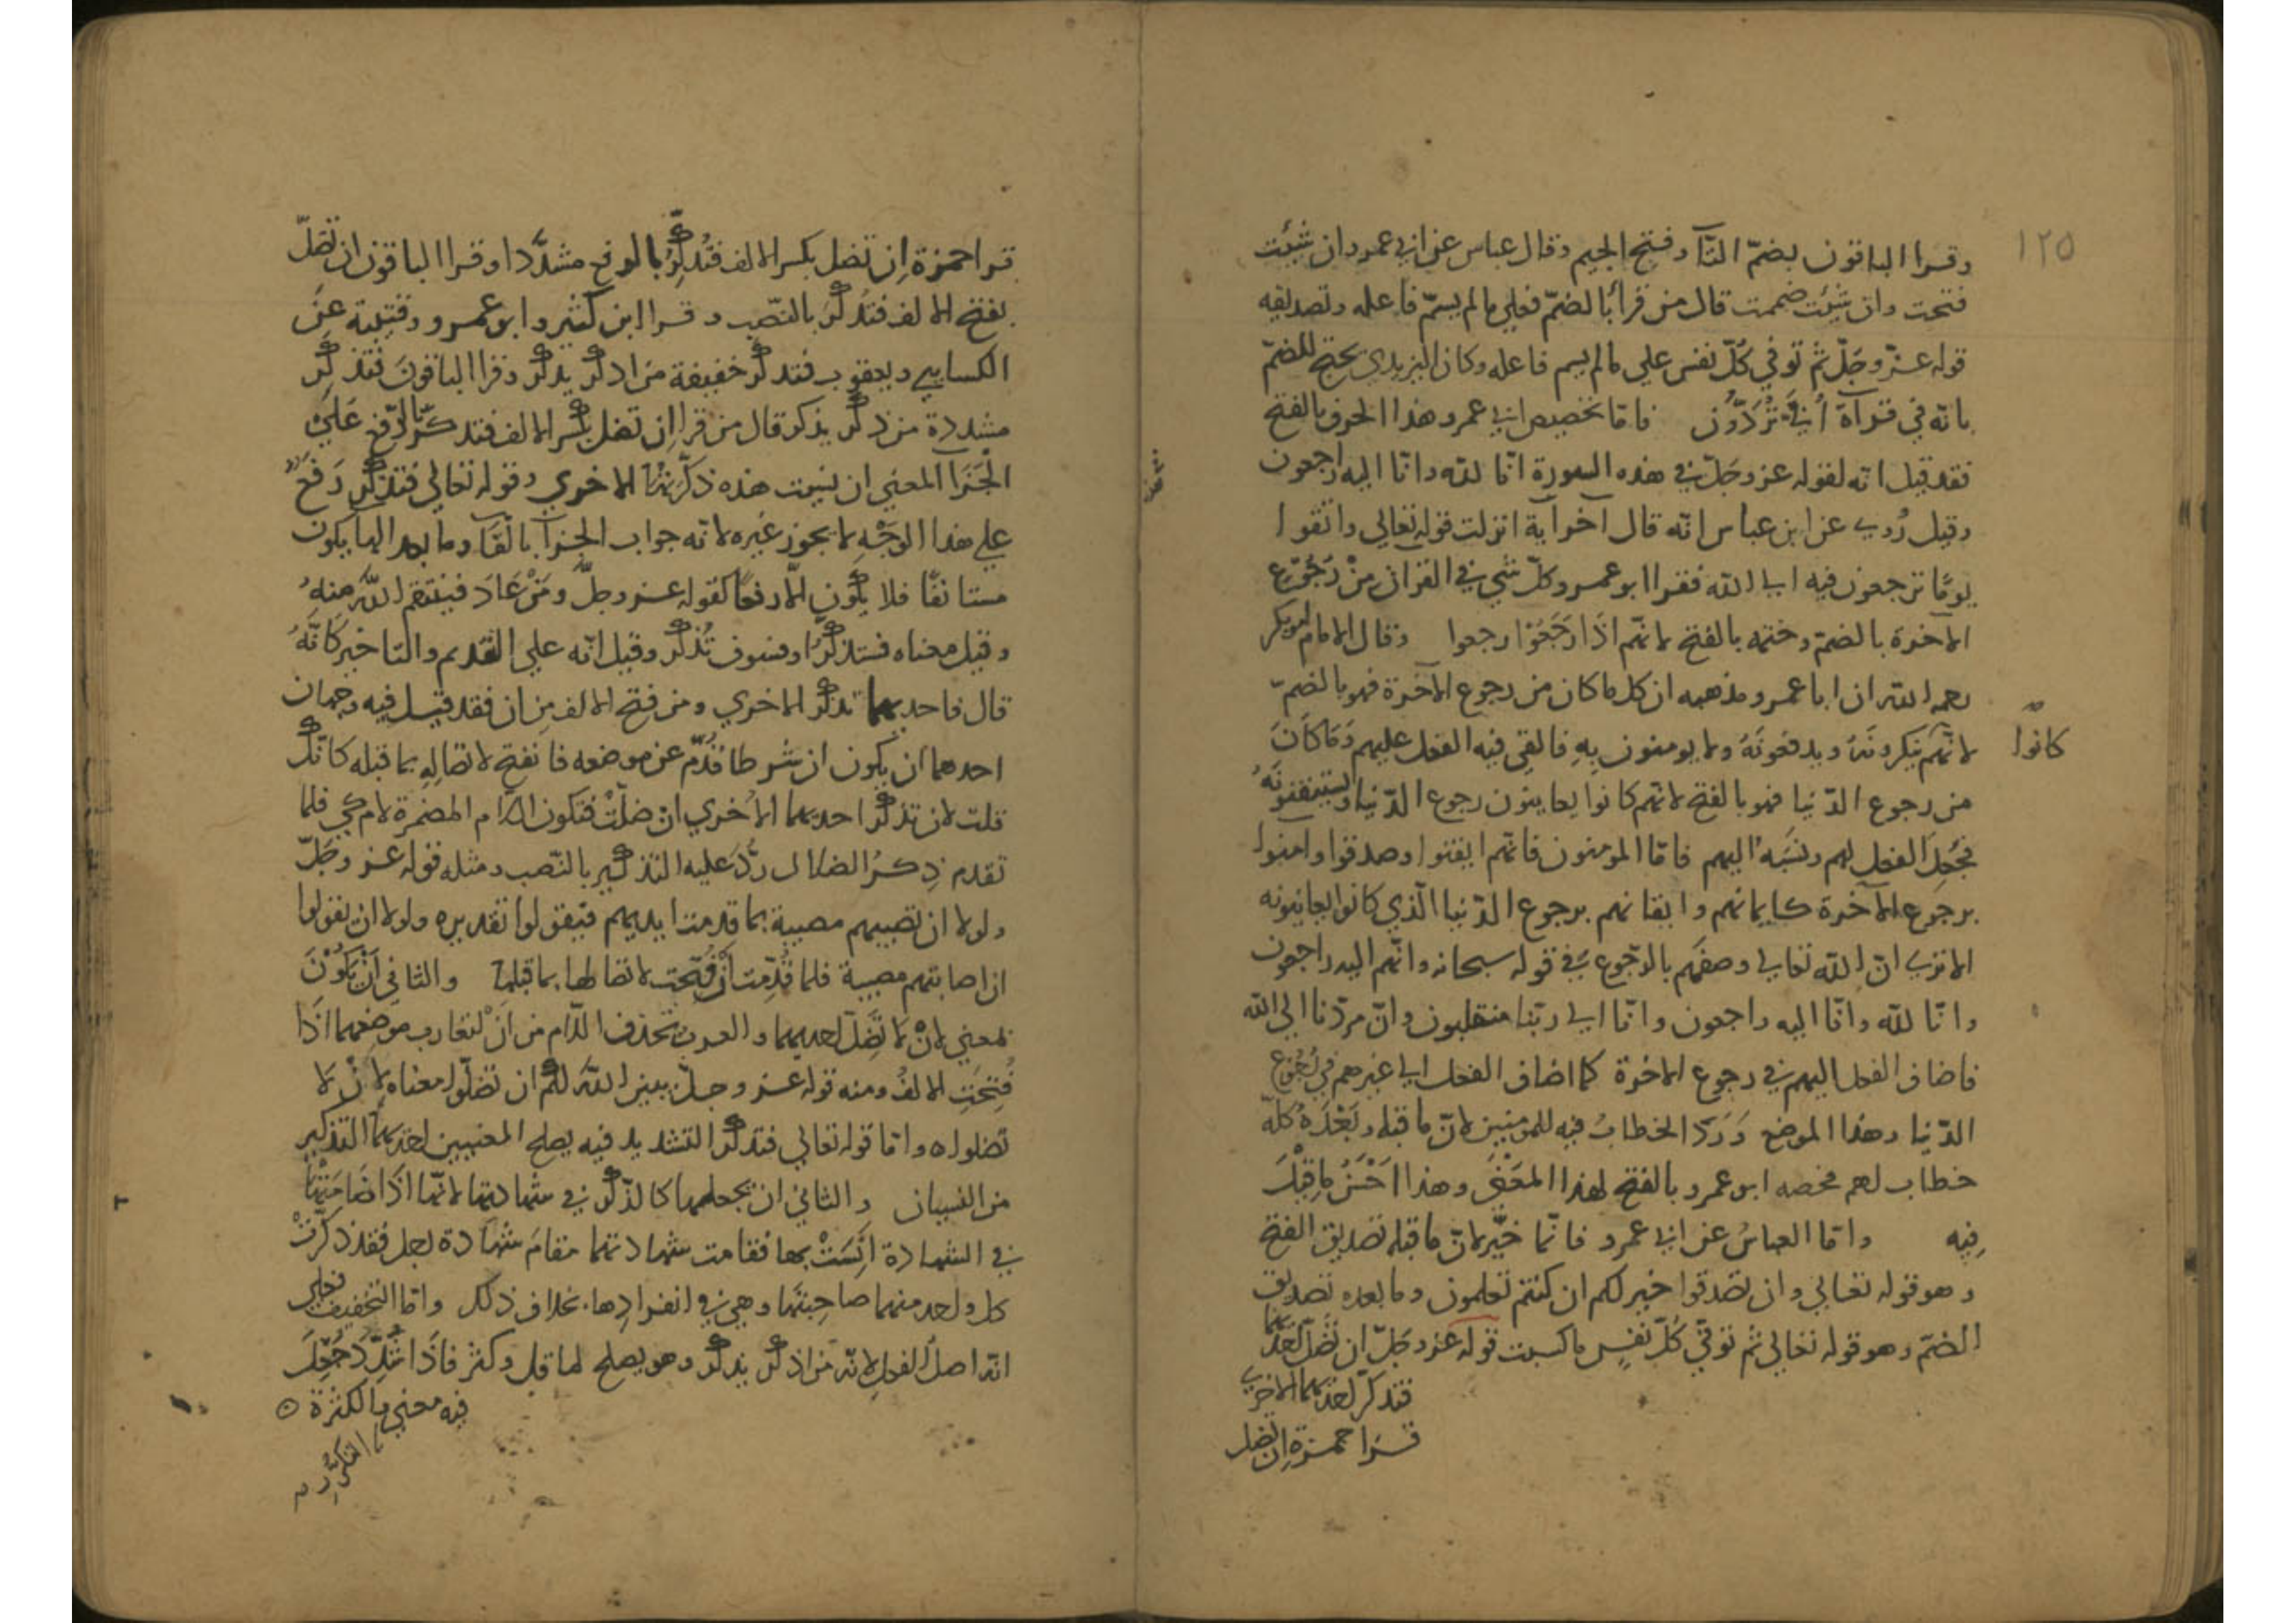 ١٢٥
وقرا الباقون بضمّ التّآ وفتح الجيم وقال عباس عن ابي عمرو ان شئت
فتحت وان شئت ضممت قال من قرأ بالضمّ فعلي ما لم يسمّ فاعله وتصديقه
قوله عزّ وجلّ ثم توفي كلّ نفس علي ما لم يسم فاعله وكان اليزيدي يحتج للضمّ
بانه في قرآة أُبيّ تُرَدُّون فاما تخصيص ابي عمرو هذا الحرف بالفتح
فقد قيل انه لقوله عز وجلّ في هذه السورة انا لله وانا اليه راجعون
وقيل رُوي عن ابن عباس انّه قال آخر آية انزلت قوله تعالي واتقوا
يومًا ترجعون فيه الي الله فقرا ابو عمرو كلّ شي في القران من رُجُوع
الآخرة بالضمّ وختمه بالفتح لانهم اذا رَجَعُوْا رجعوا وقال الامام ابو بكر
رحمه الله ان ابا عمرو مذهبه ان كل ما كان من رجوع الآخرة فهو بالضمّ
لانّهم ينكرونَهُ ويدفعونَهُ ولا يومنون بِهِ فالقي فيه الفعل عليهم وَمَا كَانَ
كانوا
من رجوع الدّنيا فهو بالفتح لانهم كانوا يعاينون رجوع الدّنيا ويستيقنونَهُ
فجُعِلَ الفعل لهم ونَسَبَهُ اليهم فامّا المومنون فانّهم ايقنوا وصدقوا وامنوا
برجوع الآخرة كايمانهم وايقانهم برجوع الدّنيا الّذي كانوا يعاينونه
الا تري انّ الله تعالي وصفهم بالرّجوع في قوله سبحانه وانّهم اليه راجعون
وانّا لله وانّا اليه راجعون وانّا الي ربّنا منقلبون وانّ مردّنا الي الله
فاضاف الفعل اليهم في رجوع الاخرة كما اضاف الفعل الي غيرهم في رُجُوع
الدّنيا وهذا الموضع وَرَدَ الخطابُ فيه للمومنين لانّ ما قبله وبَعْدَهُ كلّه
خطاب لهم فخصه ابو عمرو بالفتح لهذا المعْنَي وهذا احْسَنُ ما قِيْلَ
فِيه وامّا العباسُ عن ابي عمرو فانّما خيّر لانّ ما قبله تصديق الفتح
وهو قوله تعالي وان تصدقوا خير لكم ان كنتم تعلمون وما بعده تصديق
الضمّ وهو قوله تعالي ثم توفّي كلّ نفسٍ ما كسبت قوله عزّ وجلّ ان تضلّ احديهما
فتذكّر احديهما الاخري
قرا حمزة ان تضل
قرا حمزة اِن تضل بكسر الالف فتُذكِّرُ بالرفع مشدَّدا وقرا الباقون ان تضلّ
بفتح الالف فتذكّرَ بالنّصب وقرا ابن كثير وابو عمرو وقتيبة عن
الكسايي ويعقوب فتذكر خفيفة من اذكر يذكر وقرا الباقونَ فتذكّر
مشددة من ذكّر يذكر قال من قرا اِن تضل بكسر الالف فتذكّر بالرّفع عَلَي
الْجَزَآ المعني ان نسيت هذه ذكّرتْها الاخري وقوله تعالي فتذكّر رَفعٌ
علي هذا الوَجْهِ لا يجوز غيره لانه جواب الجزآ بالفَآ وما بعد الفا يكون
مستانفًا فلا يكُون الّا رفعًا كقوله عز وجلّ ومَنْ عَادَ فينتقم اللهُ منهُ
وقيل معناه فستذكّرُ او فسوف تُذكّر وقيل انّه علي التقديم والتاخير كَانّهُ
قال فاحديهما تذكّر الاخري ومن فتح الالف مِن ان فقد قيل فيه وجهان
احدهما ان يكون ان شرطا قُدّم عن موضعه فانفتح لاتصاله بما قبله كانّك
قلت لان تذكّر احديهما الاُخري ان ضلّتْ فتكون اللام المضمرة لام كي فلما
تقدم ذِكرُ الضلال رُدَّ عليه التذكير بالنّصب ومثله قوله عز وجَلّ
ولولا ان تصيبهم مصيبة بما قدمت ايديهم فيقولوا تقديره ولولا ان يقولوا
ان اصابتهم مصيبة فلما قُدِّمت أنْ فُتحت لاتصالها بما قبلها والثاني اَنْ يكُوْنَ
بمعني لِانْ لا تَضِلَّ احديهما والعرب تحذف اللّام من اَنْ لتقارب موضعهما اذَا
فُتِحَتِ الالفُ ومنه قوله عز وجلّ يبين اللهُ لكُم ان تضلّوا معناه لِانْ لا
تضلوا ٥ وامّا قوله تعالي فتذكّر التشديد فيه يصلح لمعنيين احديهما التذكير
من النسيان والثاني ان تجعلها كالذّكر في شهادتها لانّها اذَا ضَامَتْها
في الشهادة اَنِسَتْ بها فقامت شهادتهما مقامَ شهادة رجل فقد ذكّرتْ
كل واحد منهما صاحِبَتَها وهي في انفرادِها بخلاف ذلك وامّا التخفيف فعلي
انّه اصلُ الفعل لانّه من اذكر يذكر وهو يصلح لما قل وكثر فاذَا شُدِّدَ جُعِلَ
فيه معني الكثرة ٥